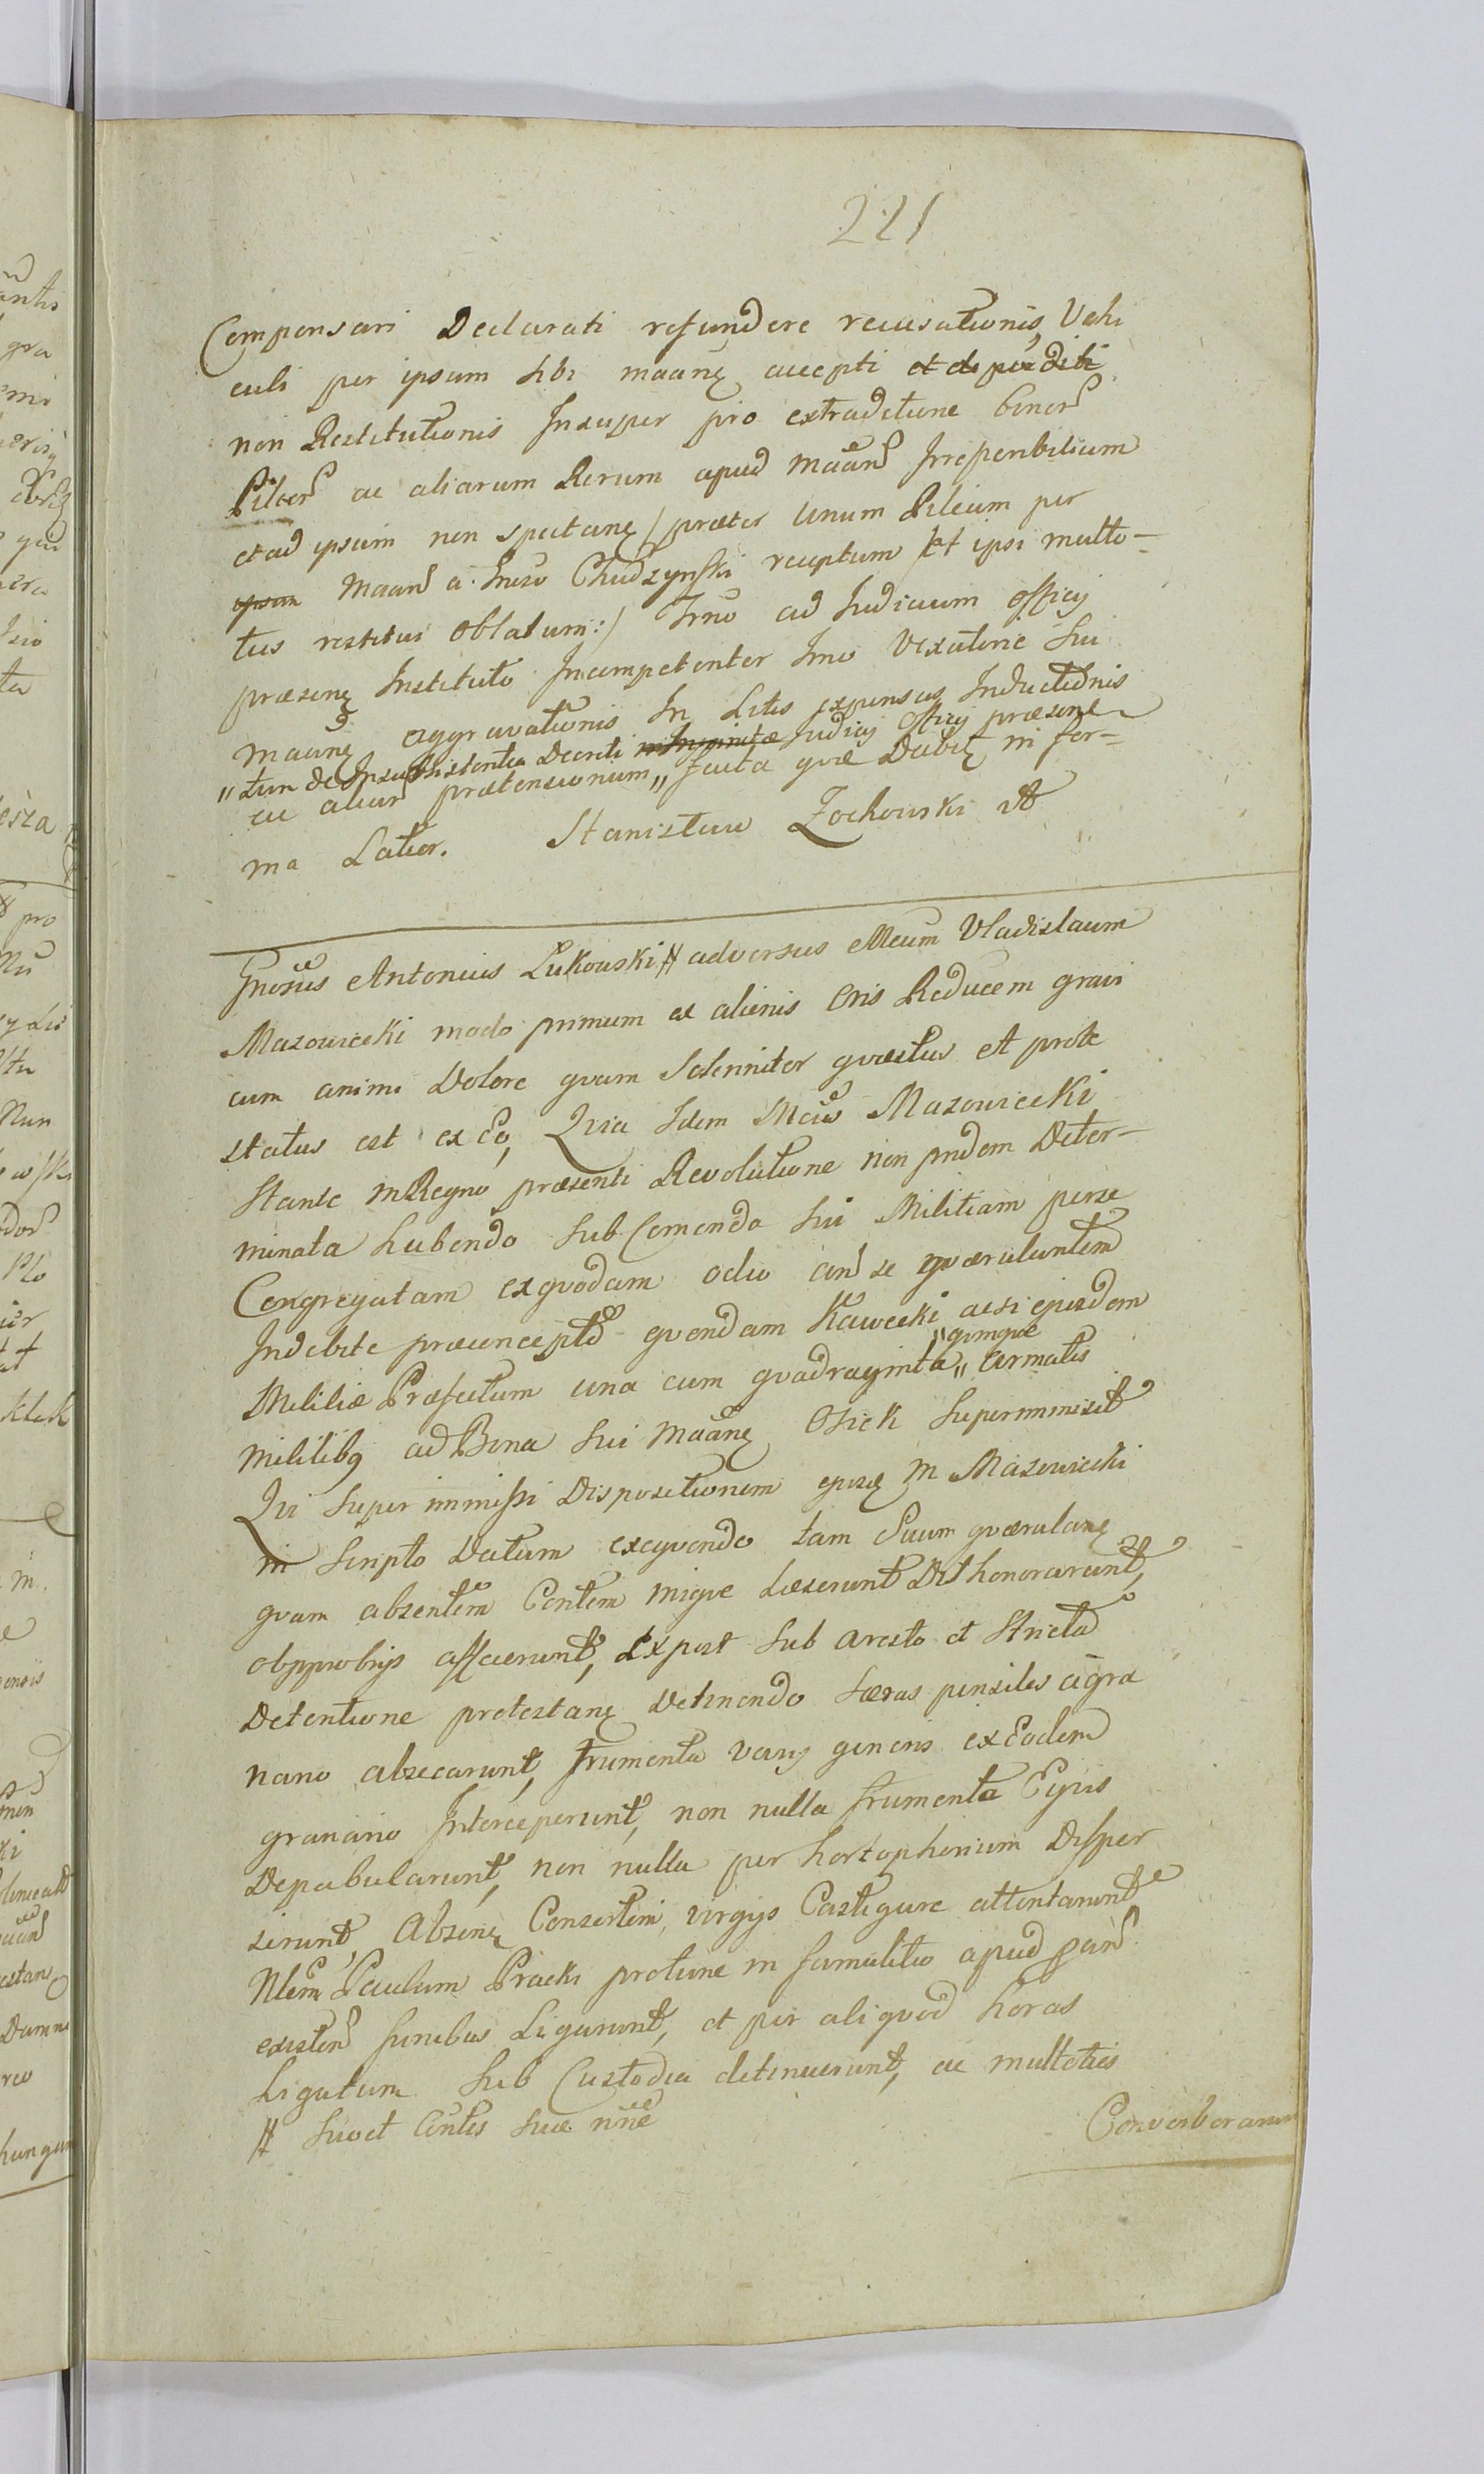 221
Compensari Declarati refundere recusationis, Vehi
culi per ipsum sibi maanę accepti et deperditi
non Restitutionis Insuper pro extraditione binor
Pileor ac aliarum Rerum apud maan Irreperibilium
et ad ipsum non spectanę / praeter unum Pileum per
ipsum Maan a Chudzynski receptum et ipsi multo-
ties restitui oblatum:/ Imo ad Iudicium officij
praesenę Instituto Incompetenter Imo Vexatorie sui
maanę aggravationis In Litis expensas Inductionis
"tum de Insubsistentia Decreti Iudicij officij praesenę
ac aliar praetensionum " facta quae Debitę in for-
ma Latior. Stanisław Zochowski
Gnosus Antonius Łukowski # adversus Mcum Vladislaum
Mazowiecki modo primum ex alienis Oris Reducem gravi
cum animi Dolore quam Solenniter quaestus et prote
status est ex eo, Quia Idem Mcus Mazowiecki
Stante in Regno praesenti Revolutione non pridem Deter-
minata habendo sub Comenda sui Militiam per se
Congregatam ex quodam odio an se quaerulantem
Indebite praeconcepto quendam Kawecki acsi ejusdem
Militiae Praefectum una cum quadraginta "quinque" armatis
militibq ad Bona sui maanę Osiek superimmisit
Qui superimmissi Dispositionem ejusę M Mazowiecki
in Scripto Datum exequendo tam Suum quaerulanę
quam absentem Contem inique Laeserunt Dishonorarunt,
obpprobrijs affecerunt, Expost sub aresto et Stricta
Detentione protestanę Detinendo Saeras pensiles a gra
nario absecarunt, frumenta varij generis ex Eodem
granario Interceperunt, non nulla frumenta Equis
Depabularunt, non nulla per hortophorium Disper
serunt, Absenę Consortem, virgijs Castigare attentarunt
Nlem Paulum Pracki protunc in famulitio apud
existen funibus Ligarunt, et per aliquod horas
Ligatum Sub Custodia detinuerunt, ac multoties
# suo et Contis suae nne
Converberarun